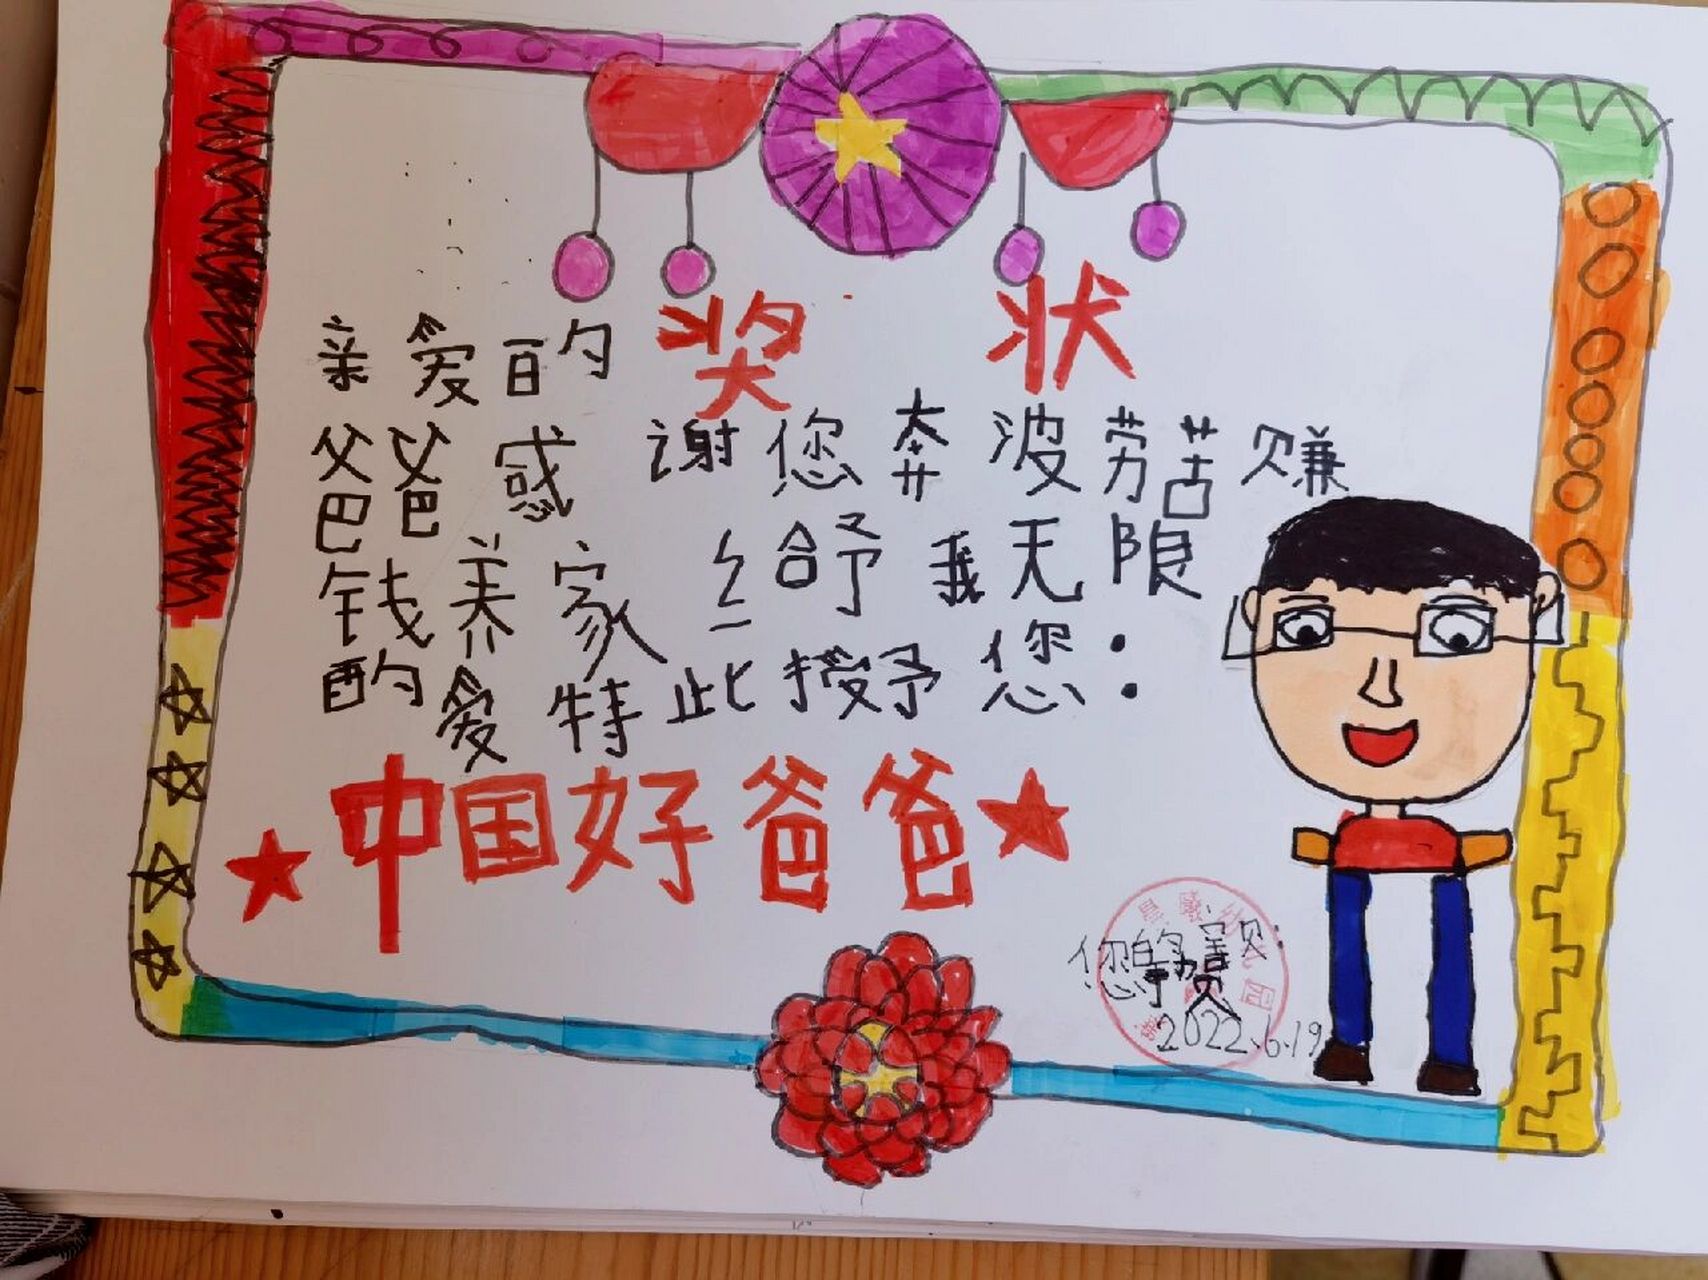 奖状
亲爱的
爸爸感谢您奔波劳苦赚
钱养家给予我无限
的爱特此授予您：
★中国好爸爸★
您的
2022.6.19